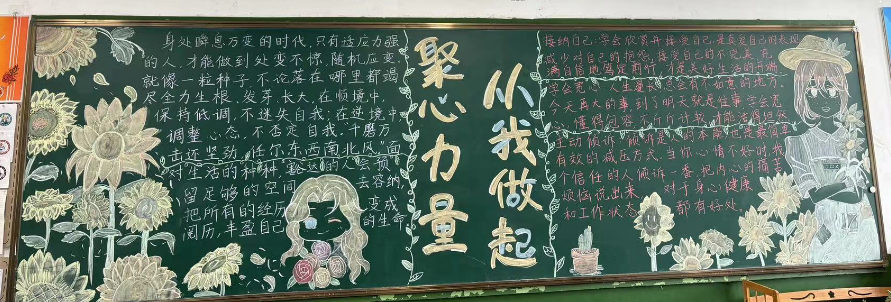 身处瞬息万变的时代,只有适应力强
的人,才能做到处变不惊,随机应变,
就像一粒种子,不论落在哪里都竭
尽全力生根、发芽、长大,在顺境中
保持低调,不迷失自我;在逆境中
调整心态,不否定自我。"千磨万
击还坚劲,任尔东西南北风"面
对生活的种种,豁达的人会预
留足够的空间 去容纳,
把所有的经历 变成
阅历,丰盈自己 的生命
聚心力量
从我做起
接纳自己:学会欣赏并接受自己是真实自己的表现
减少对自己的 接受自己的不完美,
满自信地 前行,
学会宽心:人生漫长,总会有不如意的地方,
今天再大的事,到了明天就是往事,学会宽
心,懂得包容,不斤斤计较,才能
主动倾诉:倾诉是 的本能,也是最简单
有效的减压方式,当你心情不好时,找
个信任的人倾诉一番,把内心的痛苦
烦恼说出来, 对于身心健康
和工作状态, 都有好处。